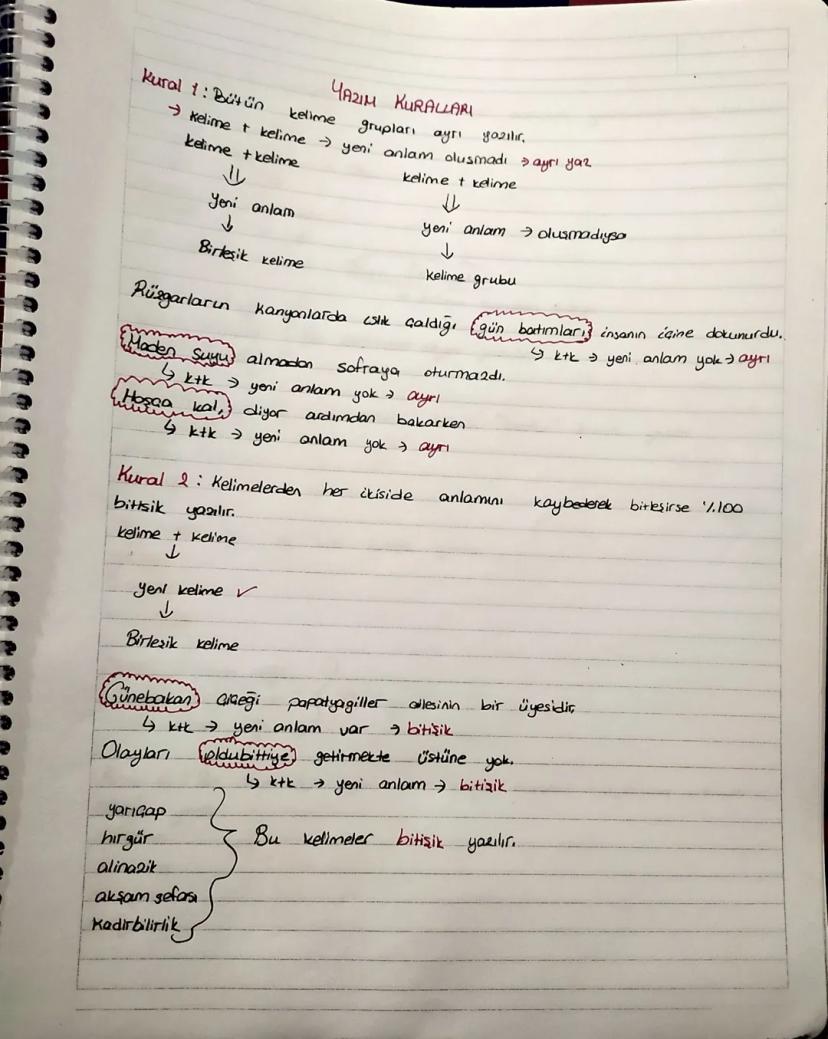 YAZIM KURALLARI
Kural 1: Bütün kelime grupları ayrı yazılır.
→ kelime + kelime → yeni anlam oluşmadı → ayrı yaz
kelime + kelime
kelime + kelime
⇓
⇓
yeni anlam
yeni anlam → oluşmadıysa
↓
↓
Birleşik kelime
kelime grubu
Rüzgarların kanyonlarda ıslık çaldığı gün batımları insanın içine dokunurdu.
↳ k+k → yeni anlam yok → ayrı
Maden suyu almadan sofraya oturmazdı.
↳ k+k → yeni anlam yok → ayrı
Hoşça kal, diyor ardımdan bakarken
↳ k+k → yeni anlam yok → ayrı
Kural 2: Kelimelerden her ikiside anlamını kaybederek birleşirse %100
bitişik yazılır.
kelime + kelime
↓
yeni kelime ✓
↓
Birleşik kelime
Günebakan çiçeği papatyagiller ailesinin bir üyesidir.
↳ k+k → yeni anlam var → bitişik
Olayları oldubittiye getirmekte üstüne yok.
↳ k+k → yeni anlam → bitişik
yarıçap
hırgür
Bu kelimeler bitişik yazılır.
alinazik
akşam sefası
kadirbilirlik